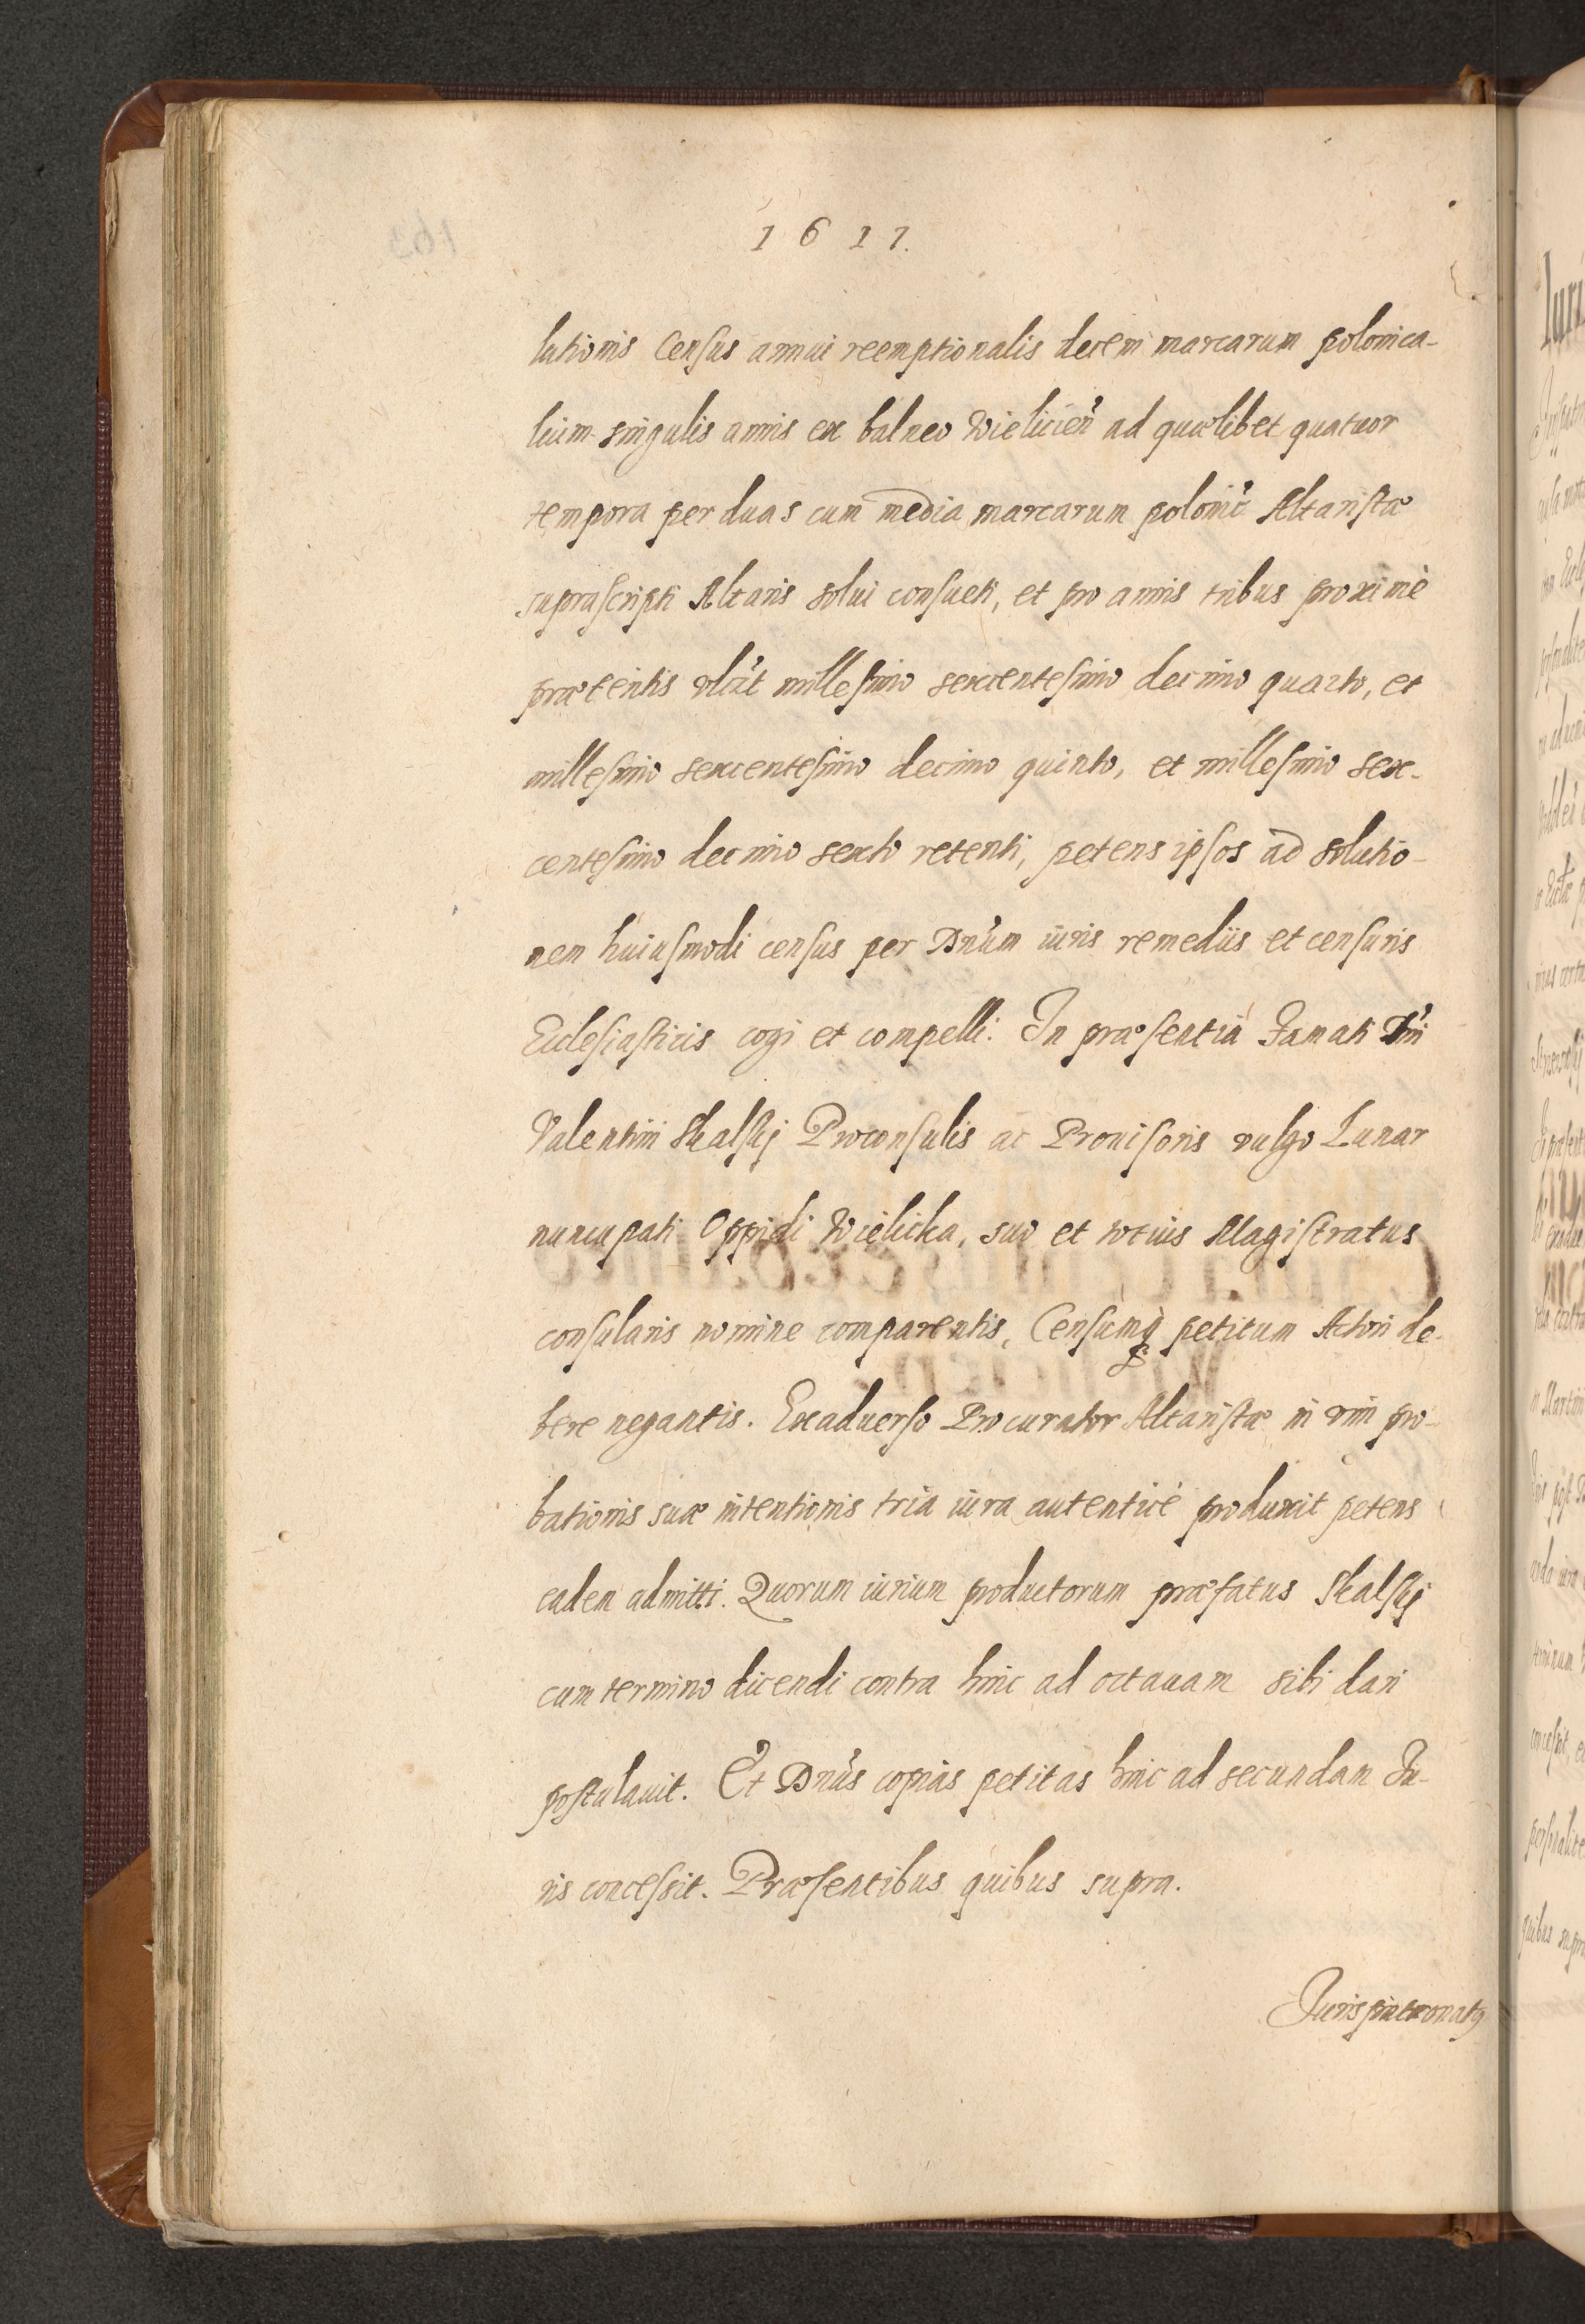 1617.
lutionis Census annui reemptionalis decem marcarum polonica-
lium singulis annis ex balneo Wielicień ad quælibet quatuor
tempora per duas cum media marcarum polonić Altaristæ
suprascripti Altaris solui consueti, et pro annis tribus proximè
præteritis vlćit millesimo sexcentesimo decimo quarto, et
millesimo sexcentesimo decimo quinto, et millesimo sex-
centesimo decimo sexto retenti, petens ipsos ad solutio-
nem huiusmodi census per Dnum iuris remediis et censuris
Ecclesiasticis cogi et compelli. In præsentia Famati Dni
Valentini Skalskj Proconsulis ac Prouisoris vulgo Lunar
nuncupati Oppidi Wielicka, suo et totius Magistratus
consularis nomine comparentis, Censumq petitum Actori de-
bere negantis. Exaduerso Procurator Altaristæ in vim pro-
bationis suæ intentionis tria iura autenticè produxit petens
eadem admitti. Quorum iurium productorum præfatus Skalskj
cum termino dicendi contra hinc ad octauam sibi dari
postulauit. Et Dnus copias petitas hinc ad secundam Iu-
ris concessit. Præsentibus quibus supra.
Iurispatronatus